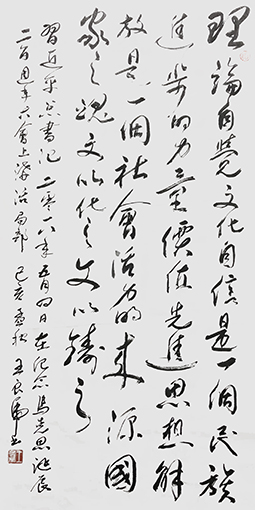 理論自覺文化自信是一個民族
進步的力量價值先進思想解
放是一個社會活力的來源國
家之魂文以化之文以鑄之
習近平总書記二零一八年五月四日在紀念馬克思誕辰
二百週年大會上講話局部 己亥孟秋 王良虎書